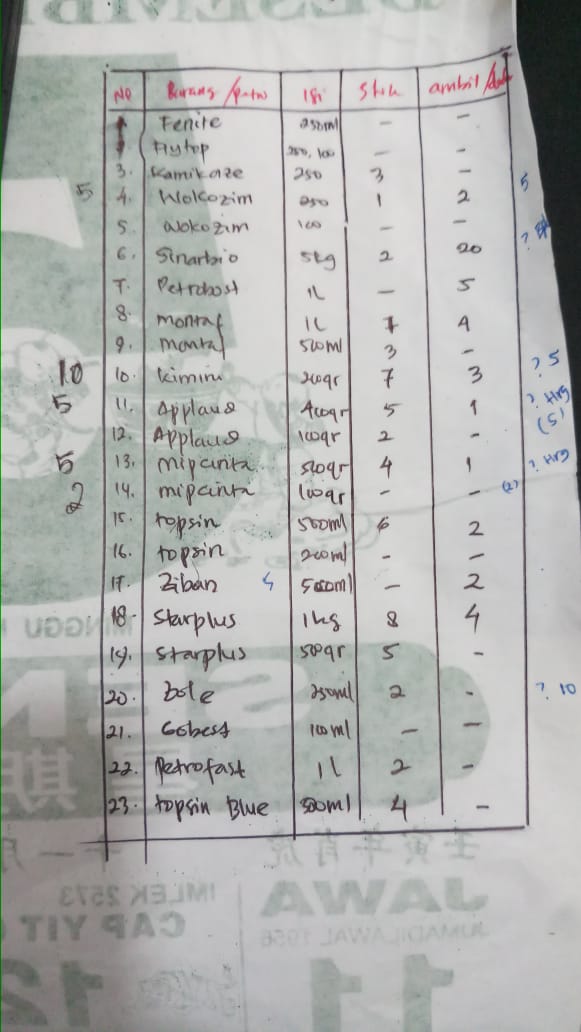 DESEMB
No Barang / Isi Stok ambil /
1 Fenite 250ml - -
Flytop 250, 100 - -
3. Kamikaze 250 3 -
5 4. Wokozim 250 1 2 5
5. Wokozim 100 - -
6. Sinarbio 5kg 2 20 ?
7. Petrobost 1L - 5
8. montaf 1L 7 4
9. montaf 500ml 3 -
10 10. Kimiru 200gr 7 3 ? 5
5 11. Applaud 400gr 5 1 ? Hrg (5)
12. Applaud 100gr 2 -
5 13. mipcinta 500gr 4 1 ? Hrg
2 14. mipcinta 100gr - - (2)
15. topsin 500ml 6 2
16. topsin 200ml - -
17. Ziban 500ml - 2
18. Starplus 1kg 8 4
19. Starplus 500gr 5 -
20. bole 250ml 2 - ? 10
21. Gobest 100ml - -
22. Petrofast 1L 2 -
23. topsin Blue 500ml 4 -
MINGGU
星期
壬寅年肖虎
IMLEK 2573
CAP YIT
JAWA
JUMADILAWAL 1956
11